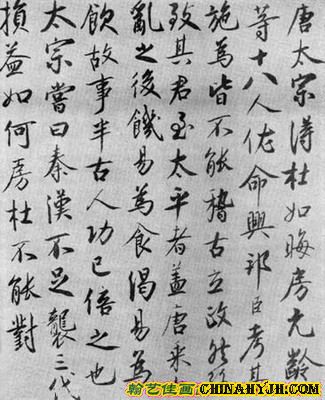 唐太宗得杜如晦房元齡
等十八人佐命興邦臣考其
施為皆不能稽古立政然
致其君至太平者蓋唐乘
亂之後饑易為食渴易為
飲故事半古人功已倍之也
太宗嘗曰秦漢不足襲三代
損益如何房杜不能對
翰艺佳画
CHINAHYJH.COM